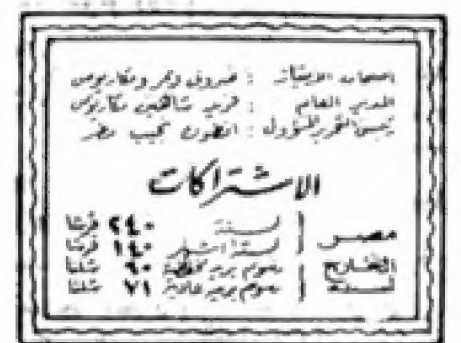 اصحاب الامتياز : صروف ونمر ومكاريوس
المدير العام : فريد شاهين مكاريوس
رئيس التحرير المسؤول : انطون نجيب مطر
الاشتراكات
مصر لسنة ٢٤٠ قرشا
لستة اشهر ١٤٠ قرشا
الخارج لسنة رسوم بريد مخفضة ٩٠ شلنا
رسوم بريد عادية ٧١ شلنا